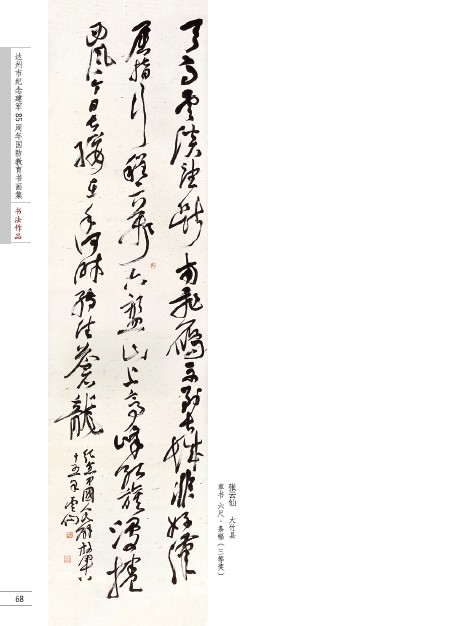 达州市纪念建军85周年国防教育书画集
书法作品
天高雲淡望断南飛雁不到长城非好漢
屈指行程二萬六盤山上高峰红旗漫捲
西風今日长缨在手何時縛住蒼龍
纪念中國人民解放軍八
十五年雲仙
张云仙 大竹县
草书 六尺·条幅(三等奖)
68